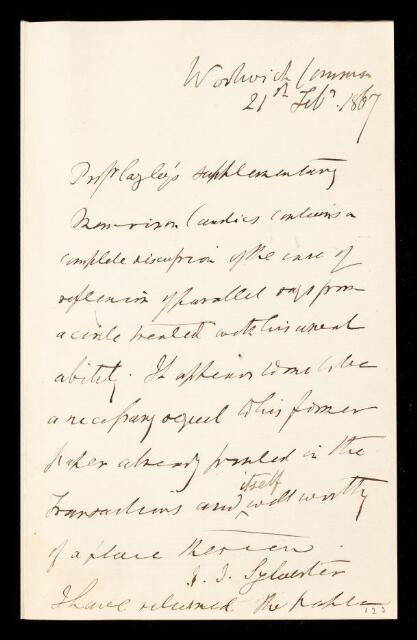 Woolwich Common
21st Feby. 1867
Profr Cayley's supplementary
Memoir on Caustics contains a
complete discussion of the case of
reflexion of parallel rays from
a circle treated with his usual
ability. It appears to me to be
a necessary sequel to his former
paper already printed in the
Transactions and itself well worthy
of a place therein.
J. J. Sylvester
I have returned the paper
123